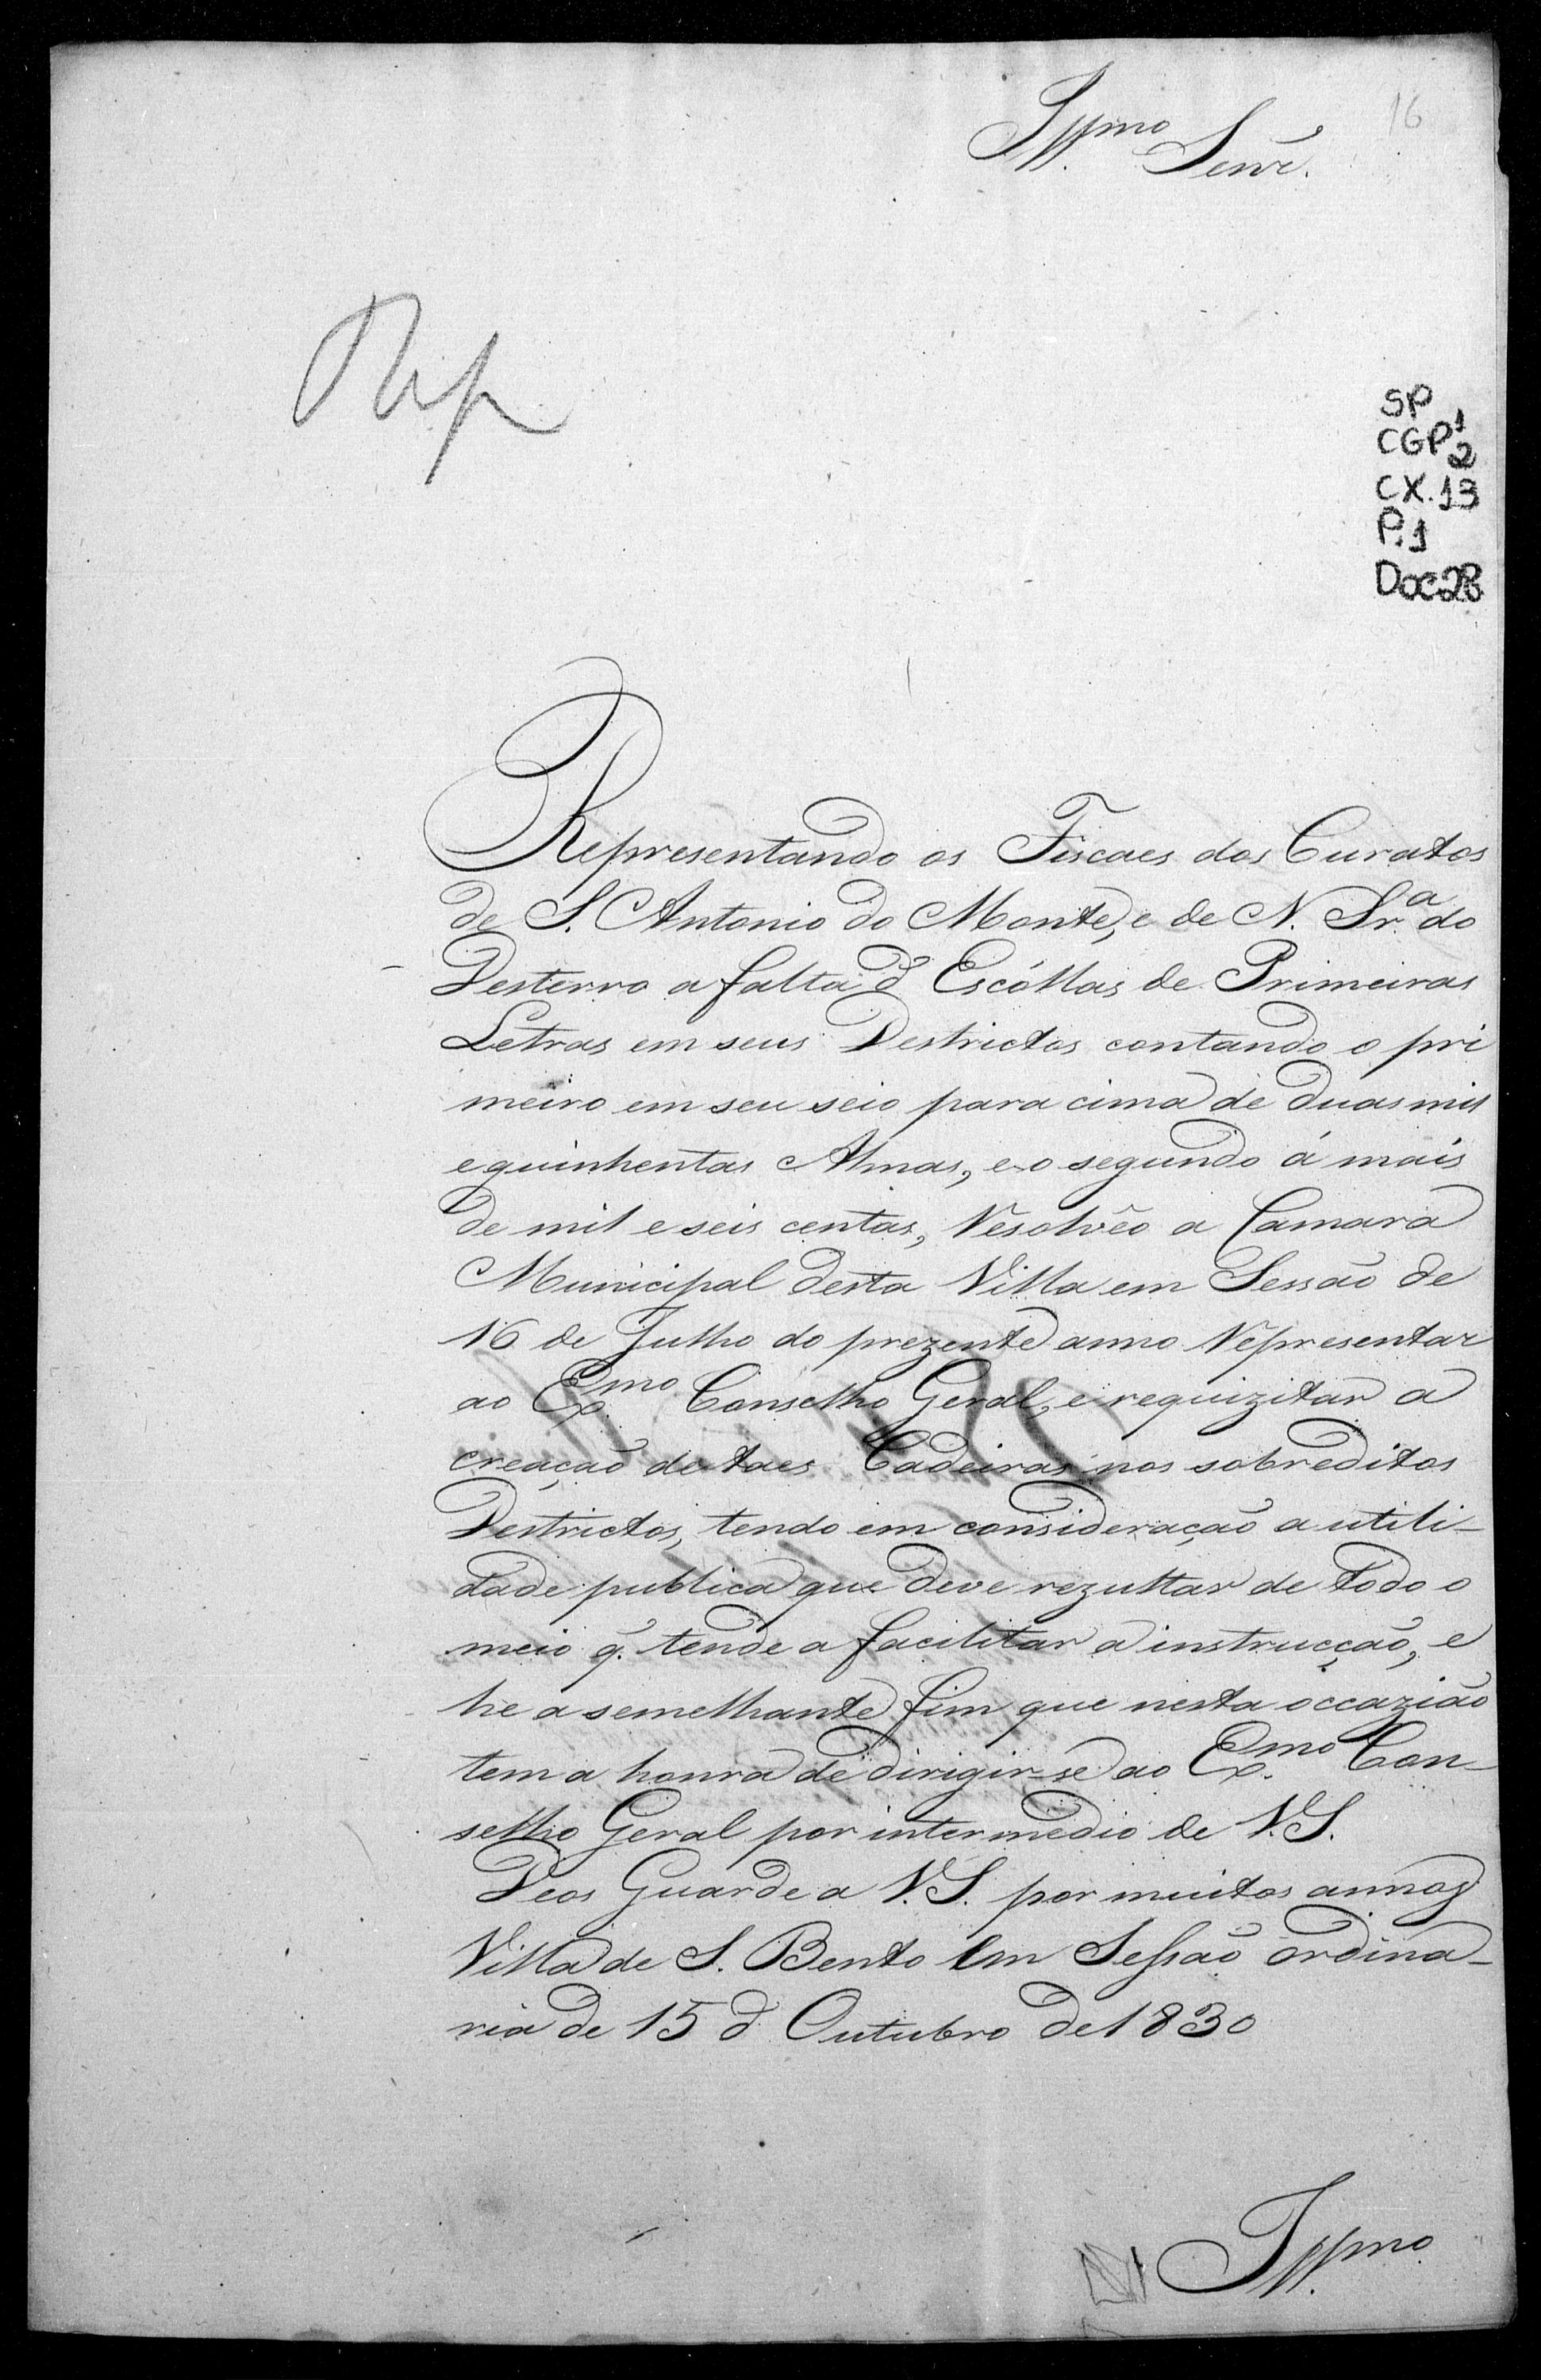 16
Illmo Senr.
Rep
SP
CGP1
2
CX.13
P.1
Doc28
Representando os Fiscaes dos Curatos
de S. Antonio do Monte, e de N. Sr.a do
Desterro a falta d' Escóllas de Primeiras
Letras em seus Destrictos contando o pri
meiro em seu seio para cima de duas mil
e quinhentas Almas, e o segundo á mais
de mil e seis centas, Resolvêo a Camara
Municipal desta Villa em Sessão de
16 de Julho do prezente anno Representar
ao Exmo. Conselho Geral, e requizitar a
creação de taes Cadeiras nos sobreditos
Destrictos, tendo em consideração a utili-
dade publica que deve rezultar de todo o
meio q̃. tende a facilitar a instrucção, e
he a semelhante fim que nesta occazião
tem a honra de dirigir-se ao Exmo. Con-
selho Geral por intermedio de V.S.
Deos Guarde a V.S. por muitos annos
Villa de S. Bento em Sessão ordina-
ria de 15 d' Outubro de 1830
Illmo.